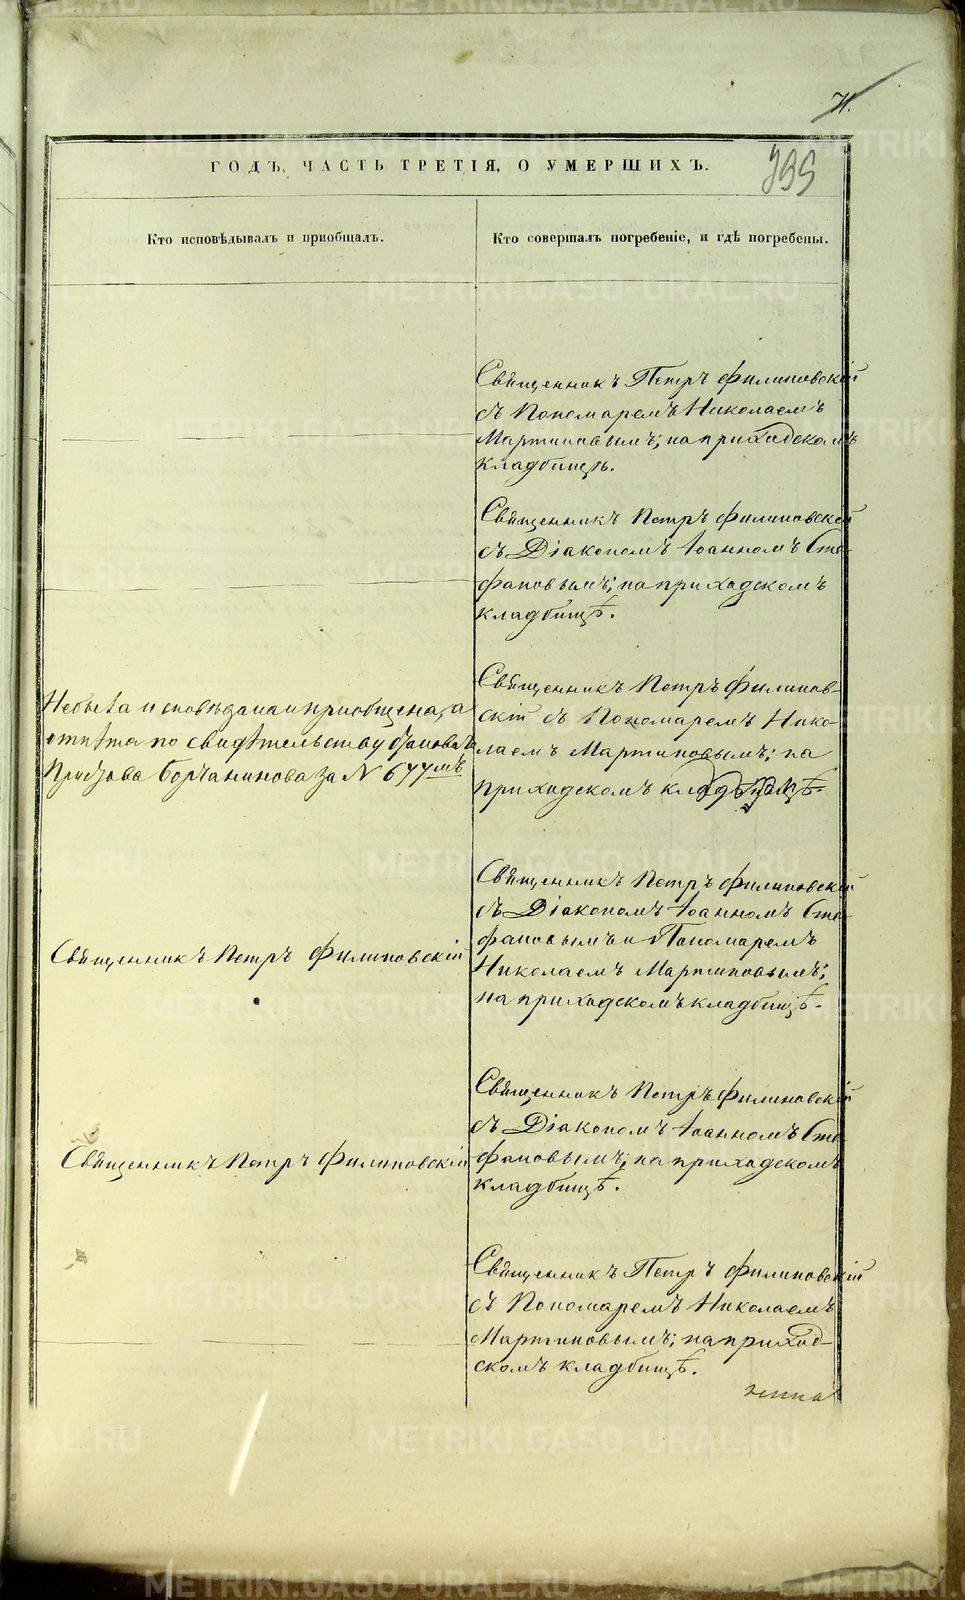 71.
ГОДЪ, ЧАСТЬ ТРЕТІЯ, О УМЕРШИХЪ.
Кто исповѣдывалъ и пріобщалъ.
Кто совершалъ погребеніе, и гдѣ погребены.
Священникъ Петръ Филиповскій
съ Пономаремъ Николаемъ
Мартиновымъ; на приходскомъ
кладбищѣ.
Священникъ Петръ Филиповскій
съ Діакономъ Іоанномъ Сте-
фановымъ; на приходскомъ
кладбищѣ.
Небыла исповѣдана и приобщена, а
отпѣта по свидѣтельству
за N 677мъ
Священникъ Петръ Филипов-
скій съ Пономаремъ Нико-
лаемъ Мартиновымъ; на
приходскомъ кладбищѣ.
Священникъ Петръ Филиповскій
Священникъ Петръ Филиповскій
съ Діакономъ Іоанномъ Сте-
фановымъ и Пономаремъ
Николаемъ Мартиновымъ;
на приходскомъ кладбищѣ.
Священникъ Петръ Филиповскій
Священникъ Петръ Филиповскій
съ Діакономъ Іоанномъ Сте
фановымъ; на приходскомъ
кладбищѣ.
Священникъ Петръ Филиповскій
съ Пономаремъ Николаемъ
Мартиновымъ; на приход-
скомъ кладбищѣ.
METRIKI.GASO-URAL.RU